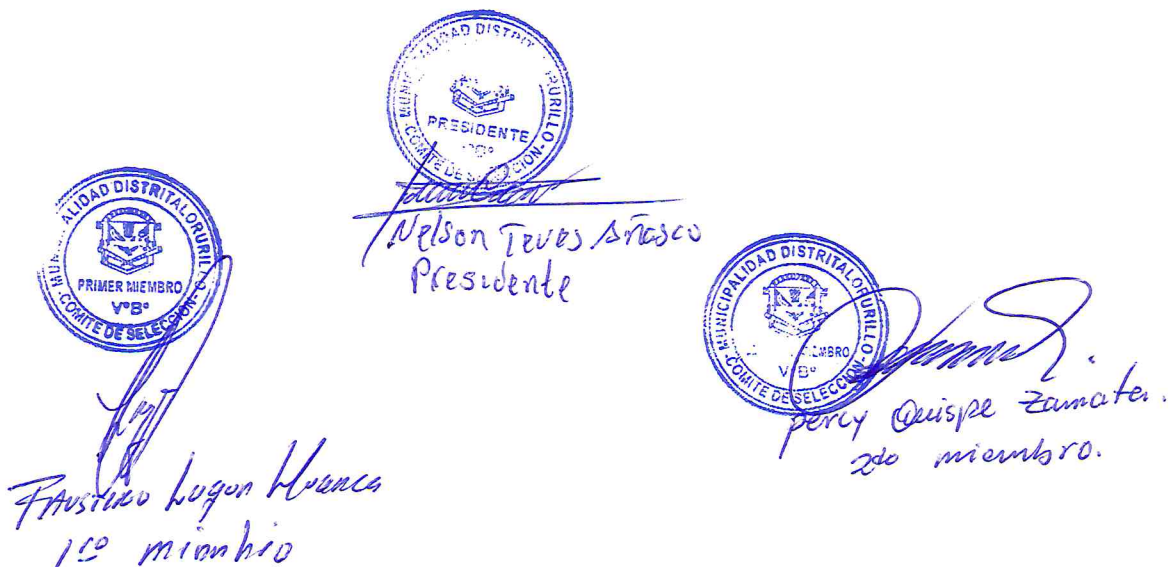 MUNICIPALIDAD DISTRITAL ORURILLO
PRESIDENTE
VºBº
COMITE DE SELECCION
Nelson Teves Añasco
Presidente
MUNICIPALIDAD DISTRITAL ORURILLO
PRIMER MIEMBRO
VºBº
COMITE DE SELECCION
Faustino Luqon Huanca
1ro miembro
MUNICIPALIDAD DISTRITAL ORURILLO
MIEMBRO
VºBº
COMITE DE SELECCION
percy Quispe Zamata.
2do miembro.